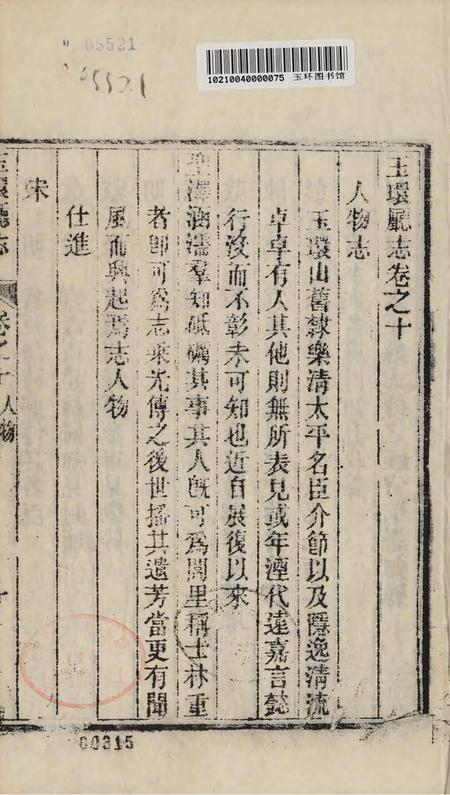 05521
05521
10210040000075 玉环图书馆
玉環廳志卷之十
人物志
玉環山舊隸樂清太平名臣介節以及隱逸清流
卓卓有人其他則無所表見或年湮代遠嘉言懿
行沒而不彰未可知也近自展復以來
聖澤涵濡羣知砥礪其事其人旣可爲閭里稱士林重
者卽可爲志乘光傳之後世播其遺芳當更有聞
風而興起焉志人物
仕進
宋
玉環廳志 卷之十 人物
00315